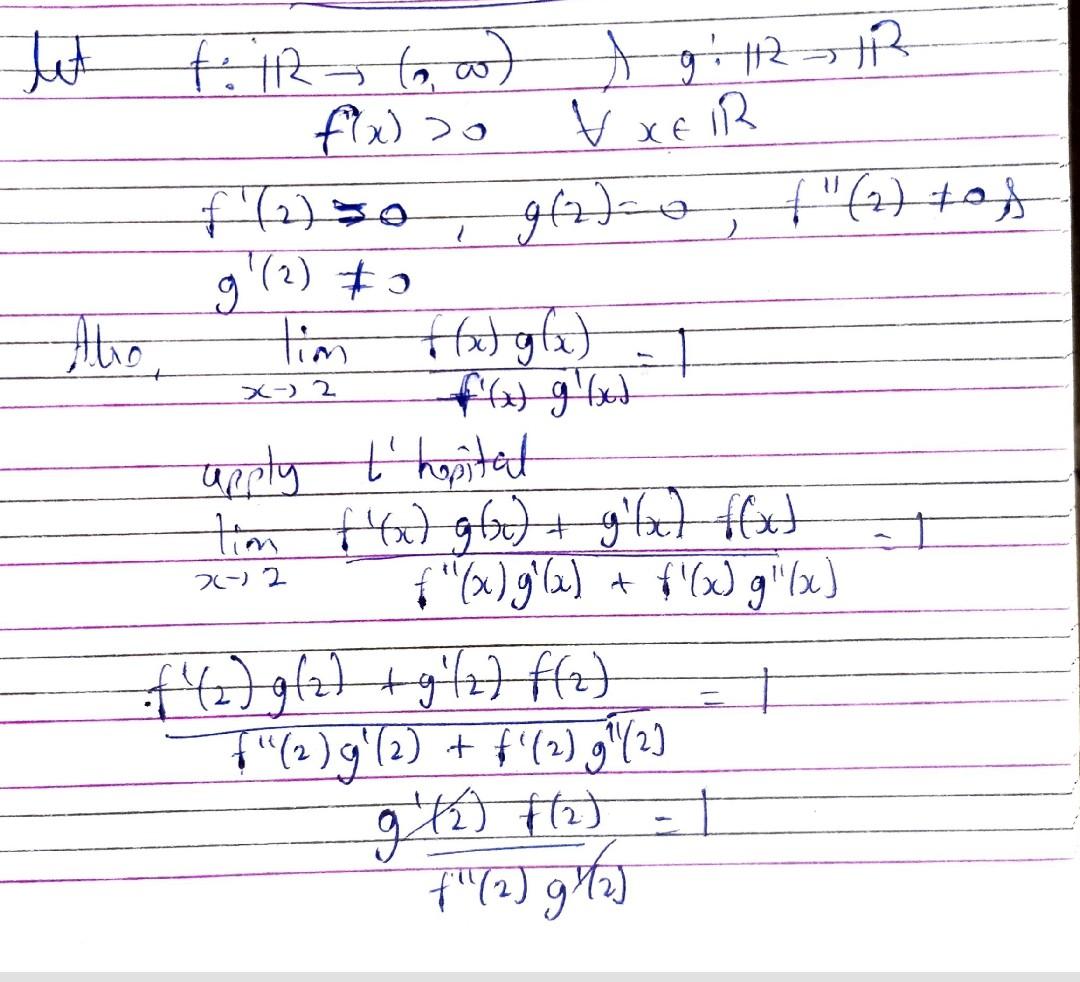 Let f: ℝ → (0, ∞) & g: ℝ → ℝ
f''(x) > 0 ∀ x ∈ ℝ
f'(2) = 0 , g(2) = 0 , f''(2) ≠ 0 &
g'(2) ≠ 0
Also, lim x→2 f(x) g(x) / f'(x) g'(x) = 1
apply L' hopital
lim x→2 f'(x) g(x) + g'(x) f(x) / f''(x) g'(x) + f'(x) g''(x) = 1
f'(2) g(2) + g'(2) f(2) / f''(2) g'(2) + f'(2) g''(2) = 1
g'(2) f(2) / f''(2) g'(2) = 1